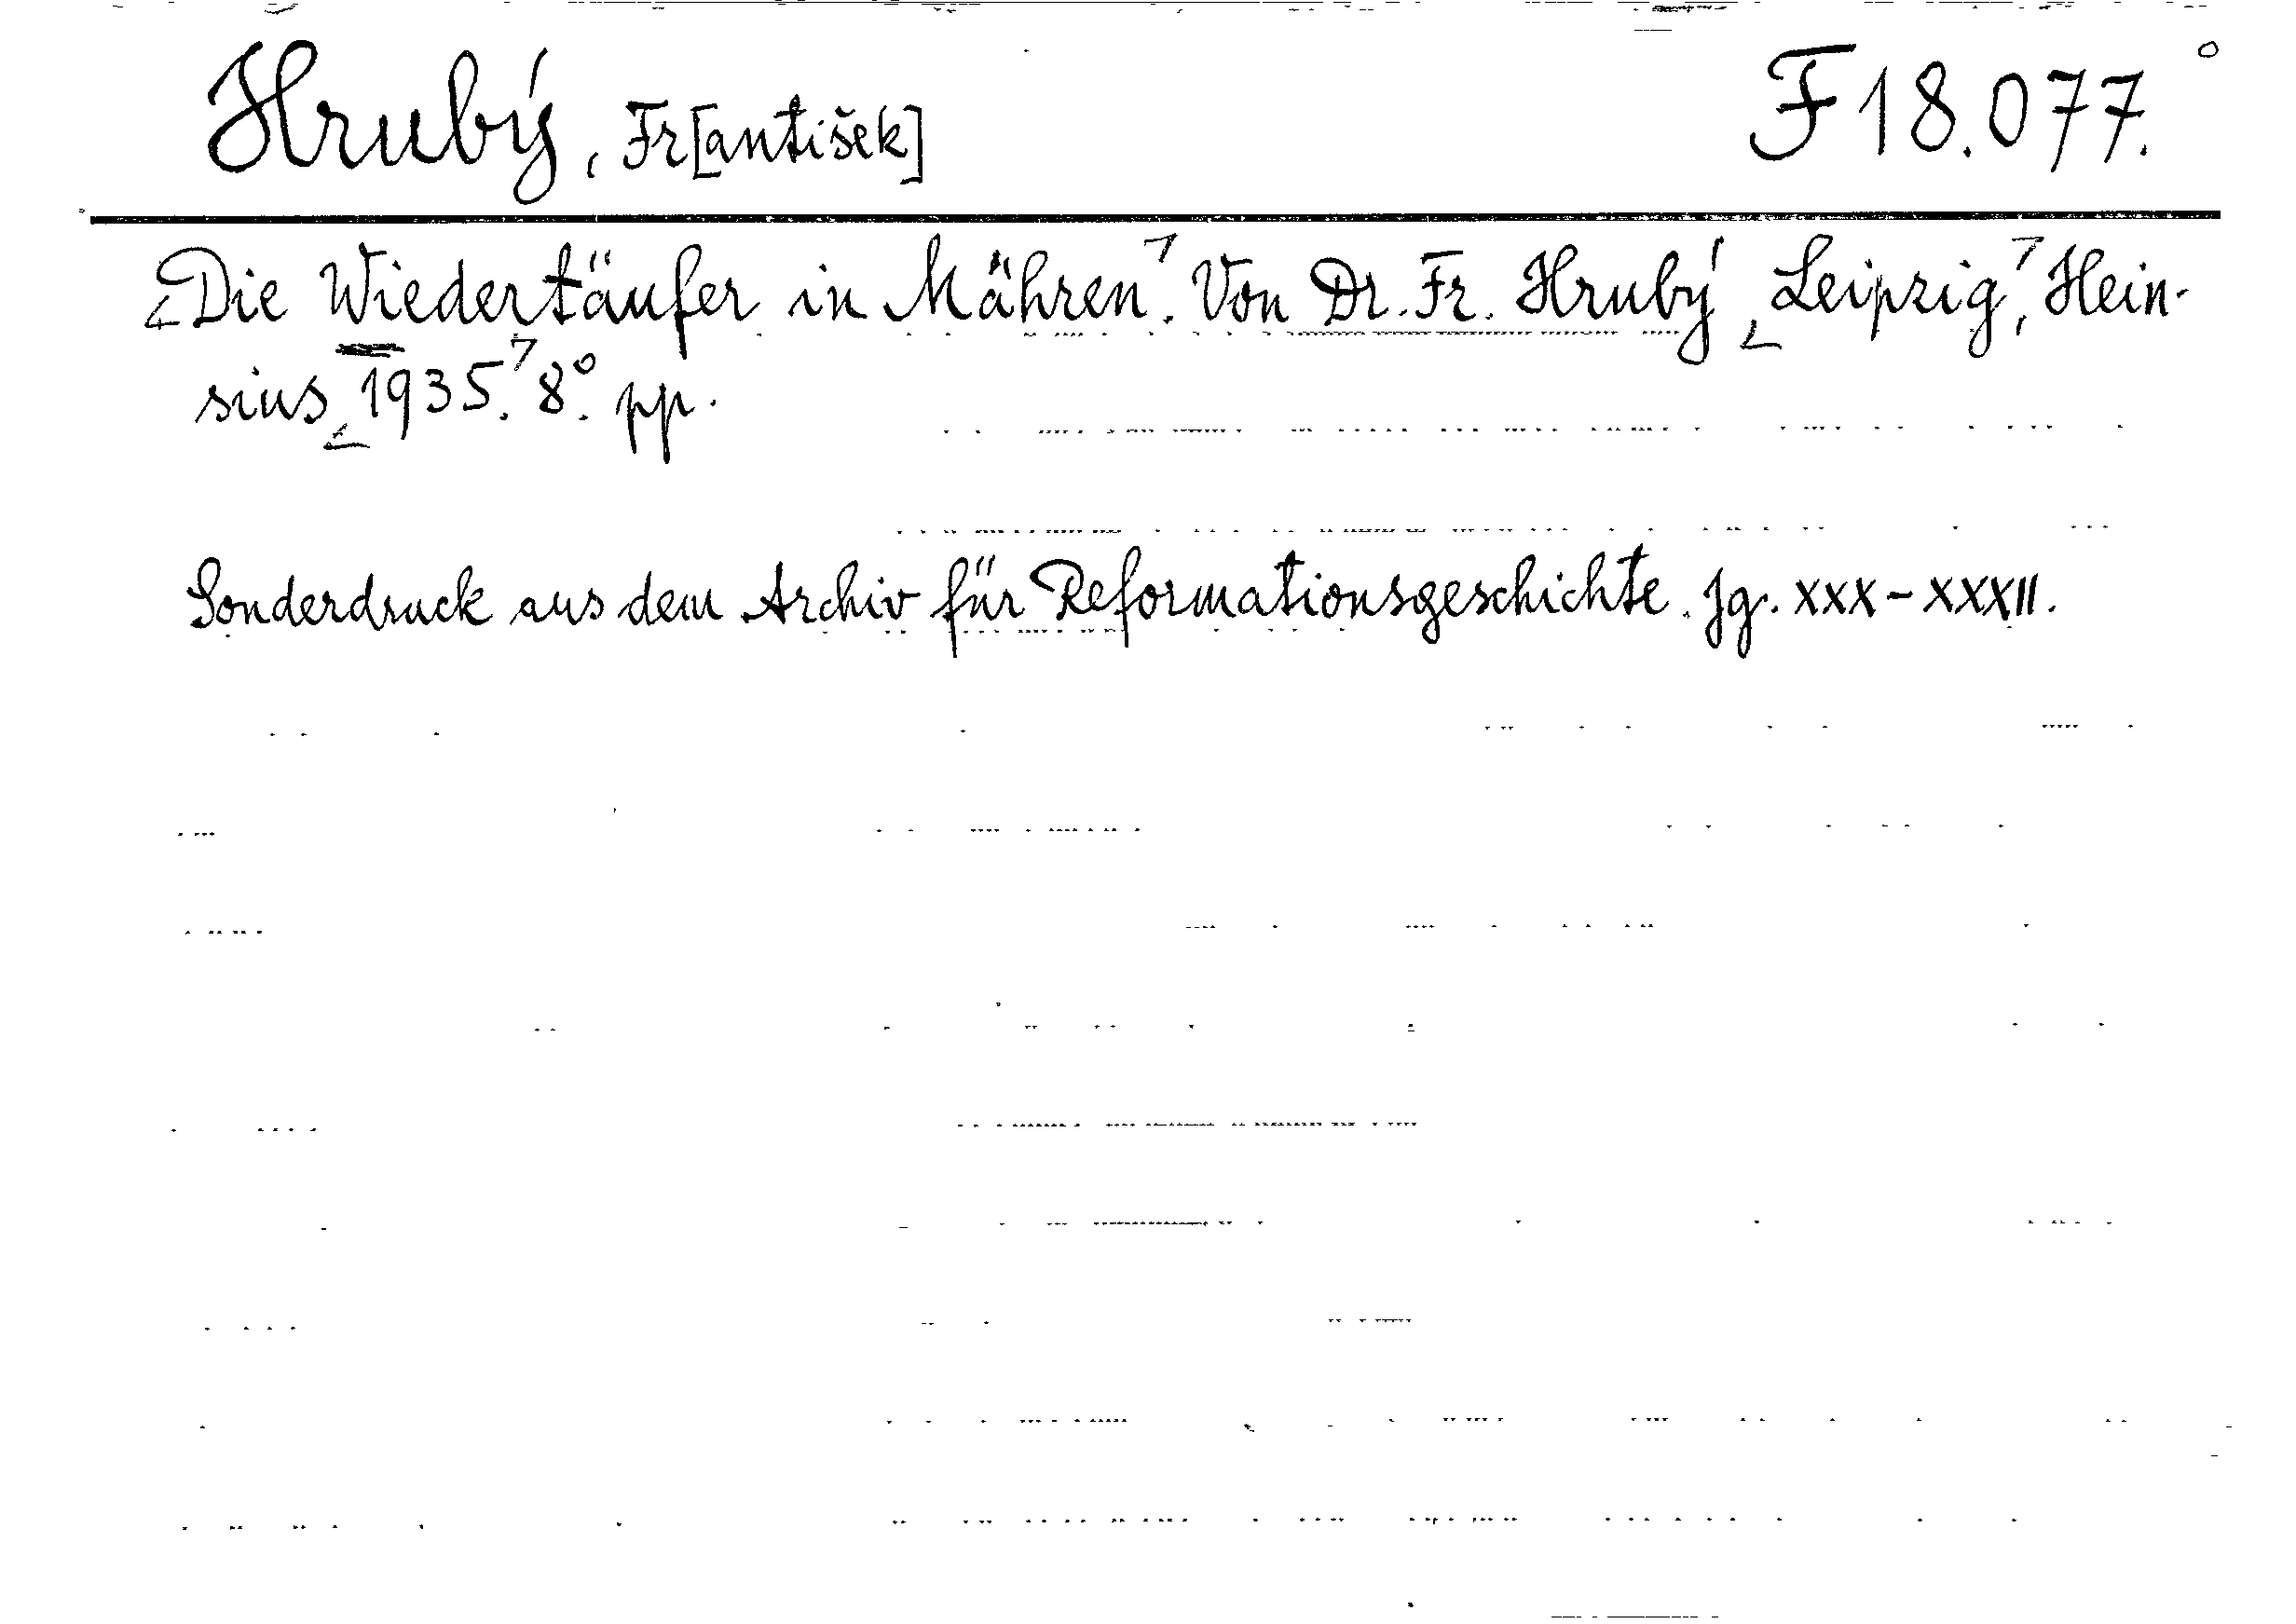 Hrubý, Fr[antišek] F 18.077.
Die Wiedertäufer in Mähren. Von Dr. Fr. Hrubý, Leipzig, Hein-
sius, 1935. 8°. pp.
Sonderdruck aus dem Archiv für Reformationsgeschichte. Jg. XXX-XXXII.